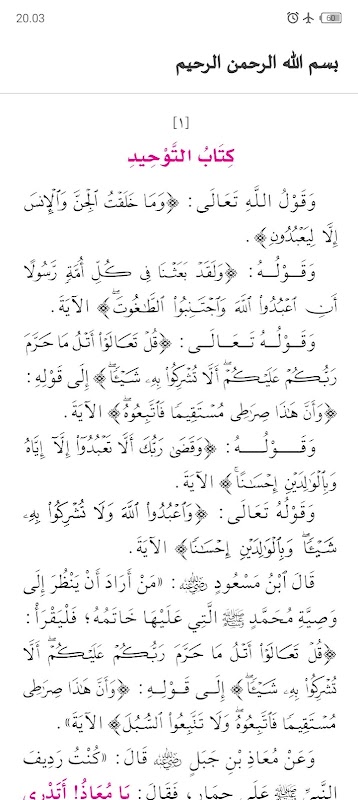 20.03
60
بسم الله الرحمن الرحيم
[١]
كِتَابُ التَّوْحِيدِ
وَقَوْلُ اللَّهِ تَعَالَى: ﴿وَمَا خَلَقْتُ ٱلْجِنَّ وَٱلْإِنسَ
إِلَّا لِيَعْبُدُونِ﴾.
وَقَوْلُهُ: ﴿وَلَقَدْ بَعَثْنَا فِى كُلِّ أُمَّةٍ رَّسُولًا
أَنِ ٱعْبُدُوا۟ ٱللَّهَ وَٱجْتَنِبُوا۟ ٱلطَّٰغُوتَۖ﴾ الآيَةَ.
وَقَوْلُهُ تَعَالَى: ﴿قُلْ تَعَالَوْا۟ أَتْلُ مَا حَرَّمَ
رَبُّكُمْ عَلَيْكُمْۖ أَلَّا تُشْرِكُوا۟ بِهِۦ شَيْـًٔاۖ﴾ إِلَى قَوْلِهِ:
﴿وَأَنَّ هَٰذَا صِرَٰطِى مُسْتَقِيمًا فَٱتَّبِعُوهُۖ﴾ الآيَةَ.
وَقَوْلُهُ: ﴿وَقَضَىٰ رَبُّكَ أَلَّا تَعْبُدُوٓا۟ إِلَّآ إِيَّاهُ
وَبِٱلْوَٰلِدَيْنِ إِحْسَٰنًاۚ﴾ الآيَةَ.
وَقَوْلُهُ تَعَالَى: ﴿وَٱعْبُدُوا۟ ٱللَّهَ وَلَا تُشْرِكُوا۟ بِهِۦ
شَيْـًٔاۖ وَبِٱلْوَٰلِدَيْنِ إِحْسَٰنًا﴾ الآيَةَ.
قَالَ ٱبْنُ مَسْعُودٍ رضي الله عنه: «مَنْ أَرَادَ أَنْ يَنْظُرَ إِلَى
وَصِيَّةِ مُحَمَّدٍ ﷺ الَّتِي عَلَيْهَا خَاتَمُهُ؛ فَلْيَقْرَأْ:
﴿قُلْ تَعَالَوْا۟ أَتْلُ مَا حَرَّمَ رَبُّكُمْ عَلَيْكُمْۖ أَلَّا
تُشْرِكُوا۟ بِهِۦ شَيْـًٔاۖ﴾ إِلَى قَوْلِهِ: ﴿وَأَنَّ هَٰذَا صِرَٰطِى
مُسْتَقِيمًا فَٱتَّبِعُوهُۖ وَلَا تَتَّبِعُوا۟ ٱلسُّبُلَ﴾ الآيَةَ».
وَعَنْ مُعَاذِ بْنِ جَبَلٍ رضي الله عنه قَالَ: «كُنْتُ رَدِيفَ
النَّبِيِّ ﷺ عَلَى حِمَارٍ، فَقَالَ: يَا مُعَاذُ! أَتَدْرِي